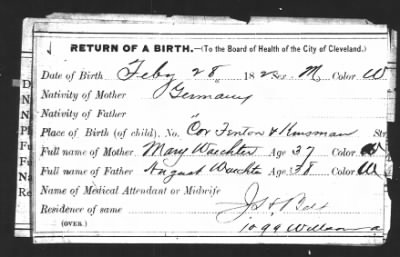 RETURN OF A BIRTH.—(To the Board of Health of the City of Cleveland.)
Date of Birth Feby 28 18 Sex M Color W
Nativity of Mother Germany
Nativity of Father "
Place of Birth (of child). No. Cor Fenton & Kinsman Str
Full name of Mother Mary Waechter Age 37 Color W
Full name of Father August Waechte Age 38 Color W
Name of Medical Attendant or Midwife
Residence of same
(OVER.) 1099